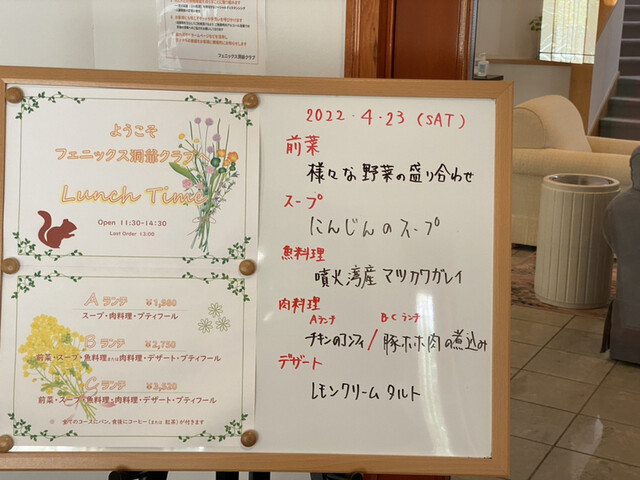 フェニックス洞爺クラブ
ようこそ
フェニックス洞爺クラブへ
Lunch Time
Open 11:30-14:30
Last Order 13:00
A ランチ ¥1,980
スープ・肉料理・プティフール
B ランチ ¥2,750
前菜・スープ・魚料理または肉料理・デザート・プティフール
C ランチ ¥3,520
前菜・スープ・魚料理・肉料理・デザート・プティフール
※ 全てのコースにパン、食後にコーヒー(または 紅茶)が付きます
2022.4.23 (SAT)
前菜
様々な野菜の盛り合わせ
スープ
にんじんのスープ
魚料理
噴火湾産マツカワガレイ
肉料理
Aランチ B.C ランチ
チキンのコンフィ / 豚ホホ肉の煮込み
デザート
レモンクリームタルト